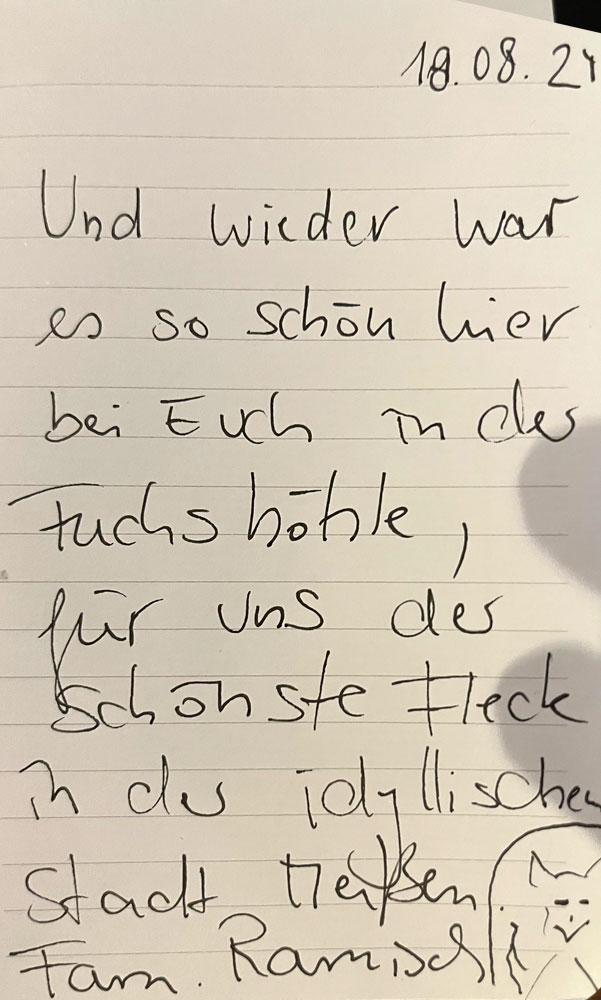 18.08.24
Und wieder war
es so schön hier
bei Euch in der
Fuchshöhle,
für uns der
schönste Fleck
in der idyllischen
Stadt Meißen
Fam. Ramisch